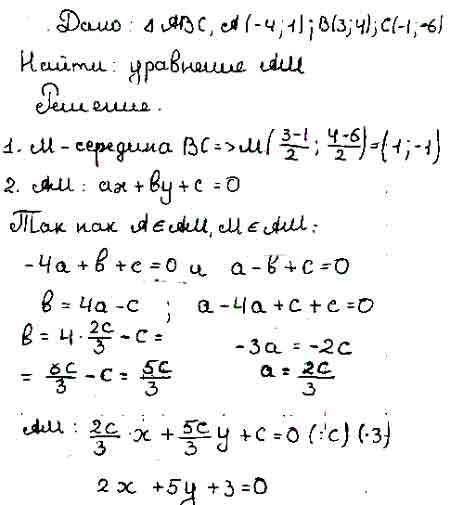 Дано: △ ABC, A(-4;1); B(3;4); C(-1;-6)
Найти: уравнение AM
Решение.
1. M - середина BC => M(3-1/2; 4-6/2) = (1;-1)
2. AM: ax + by + c = 0
Так как A ∈ AM, M ∈ AM:
-4a + b + c = 0 и a - b + c = 0
b = 4a - c ; a - 4a + c + c = 0
b = 4 · 2c/3 - c = -3a = -2c
= 8c/3 - c = 5c/3 a = 2c/3
AM: 2c/3 · x + 5c/3 y + c = 0 (:c) (·3)
2x + 5y + 3 = 0